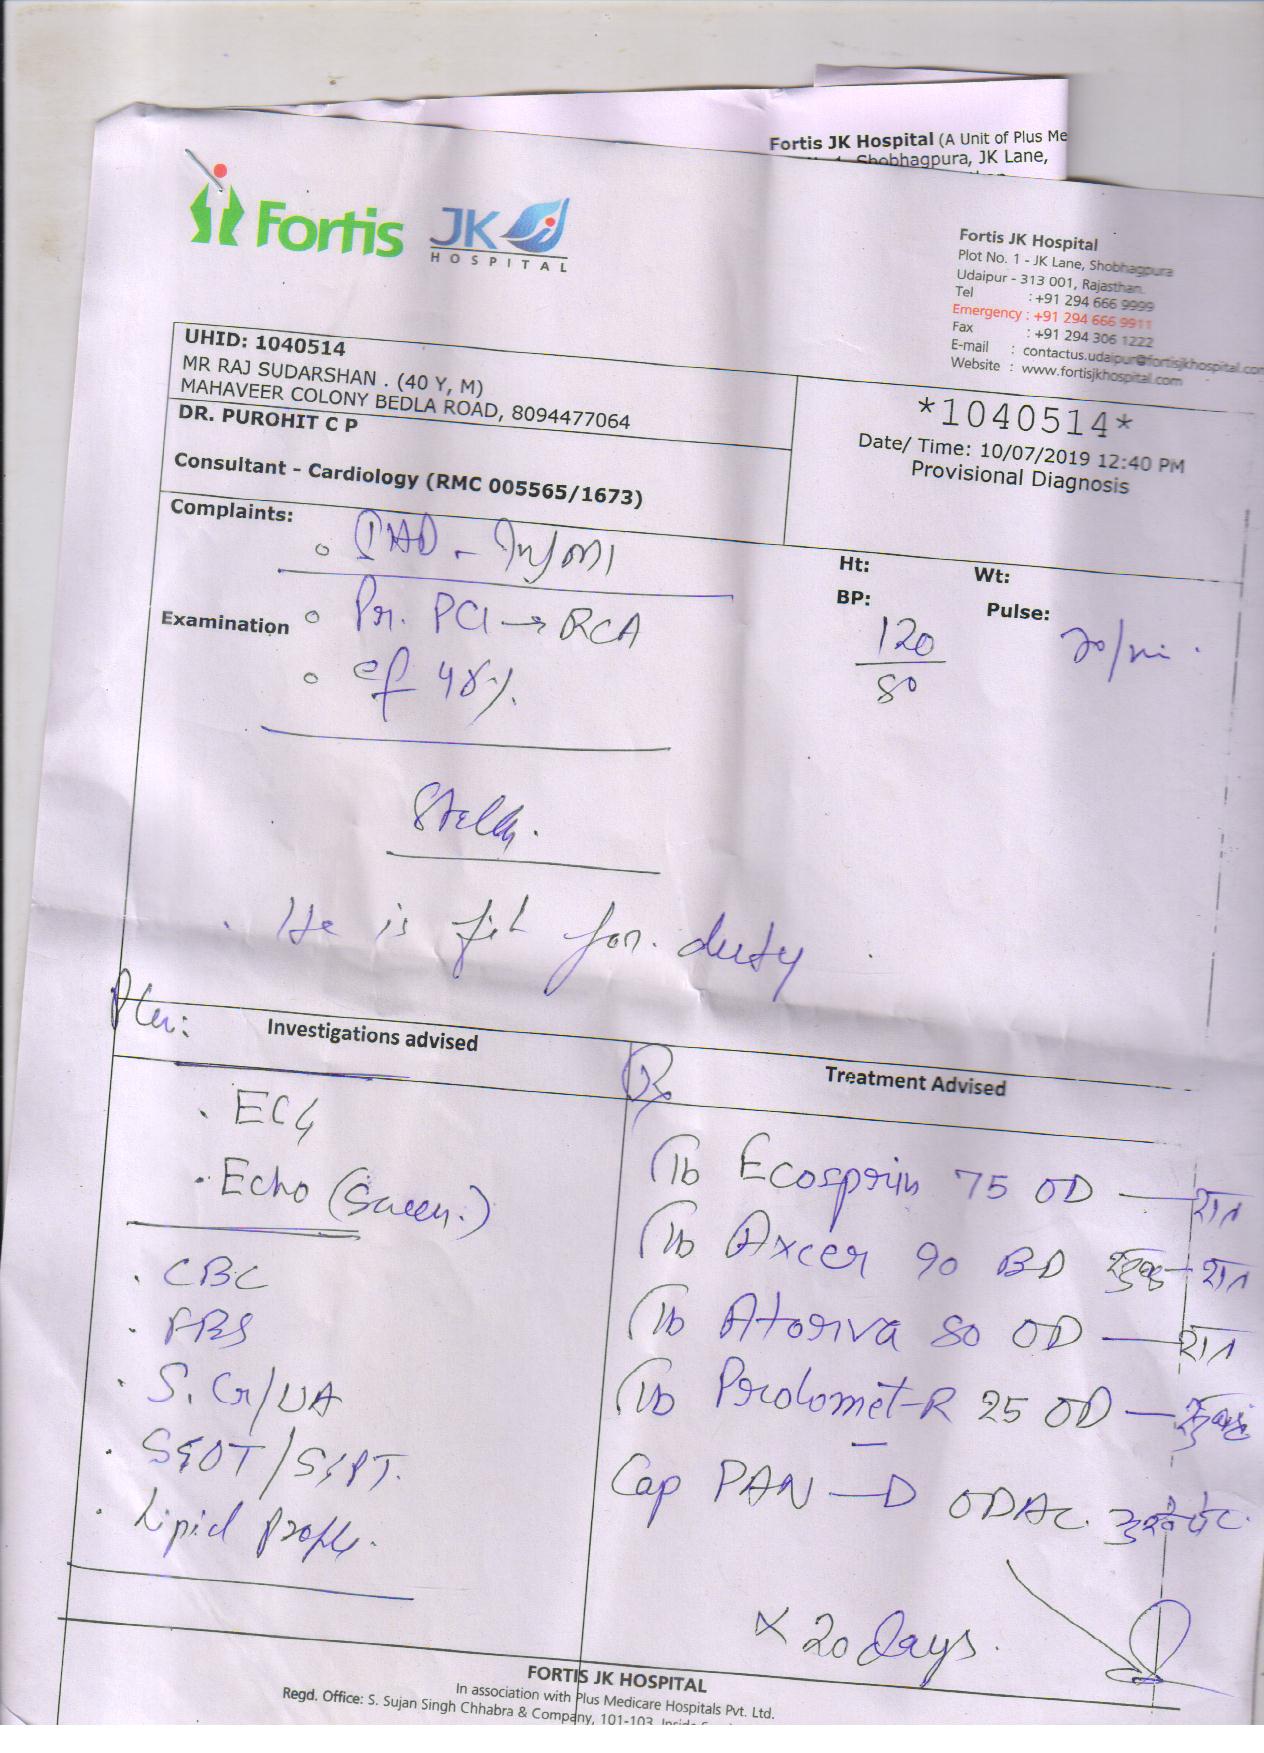 Fortis JK Hospital (A Unit of Plus Me
Shobhagpura, JK Lane,
Fortis JK
HOSPITAL
Fortis JK Hospital
Plot No. 1 - JK Lane, Shobhagpura
Udaipur - 313 001, Rajasthan.
Tel : +91 294 666 9999
Emergency : +91 294 666 9911
Fax : +91 294 306 1222
E-mail : contactus.udaipur@fortisjkhospital.com
Website : www.fortisjkhospital.com
UHID: 1040514
MR RAJ SUDARSHAN . (40 Y, M)
MAHAVEER COLONY BEDLA ROAD, 8094477064
DR. PUROHIT C P
Consultant - Cardiology (RMC 005565/1673)
*1040514*
Date/ Time: 10/07/2019 12:40 PM
Provisional Diagnosis
Complaints:
MI
Ht: Wt:
BP: Pulse:
120
80
Examination
Pr. PCI → RCA
ef 48%
He is fit for duty
Plan:
Investigations advised
Treatment Advised
Rx
ECG
Echo (Screen.)
CBC
FBS
S. Cr/UA
SGOT/SGPT.
Lipid Profile.
Tb Ecosprin 75 OD — रात
Tb Axcer 90 BD सुबह - रात
Tb Atoriva 80 OD — रात
Tb Prolomet-R 25 OD — सुबह
Cap PAN — D ODAC
x 20 days.
FORTIS JK HOSPITAL
In association with Plus Medicare Hospitals Pvt. Ltd.
Regd. Office: S. Sujan Singh Chhabra & Company, 101-103,